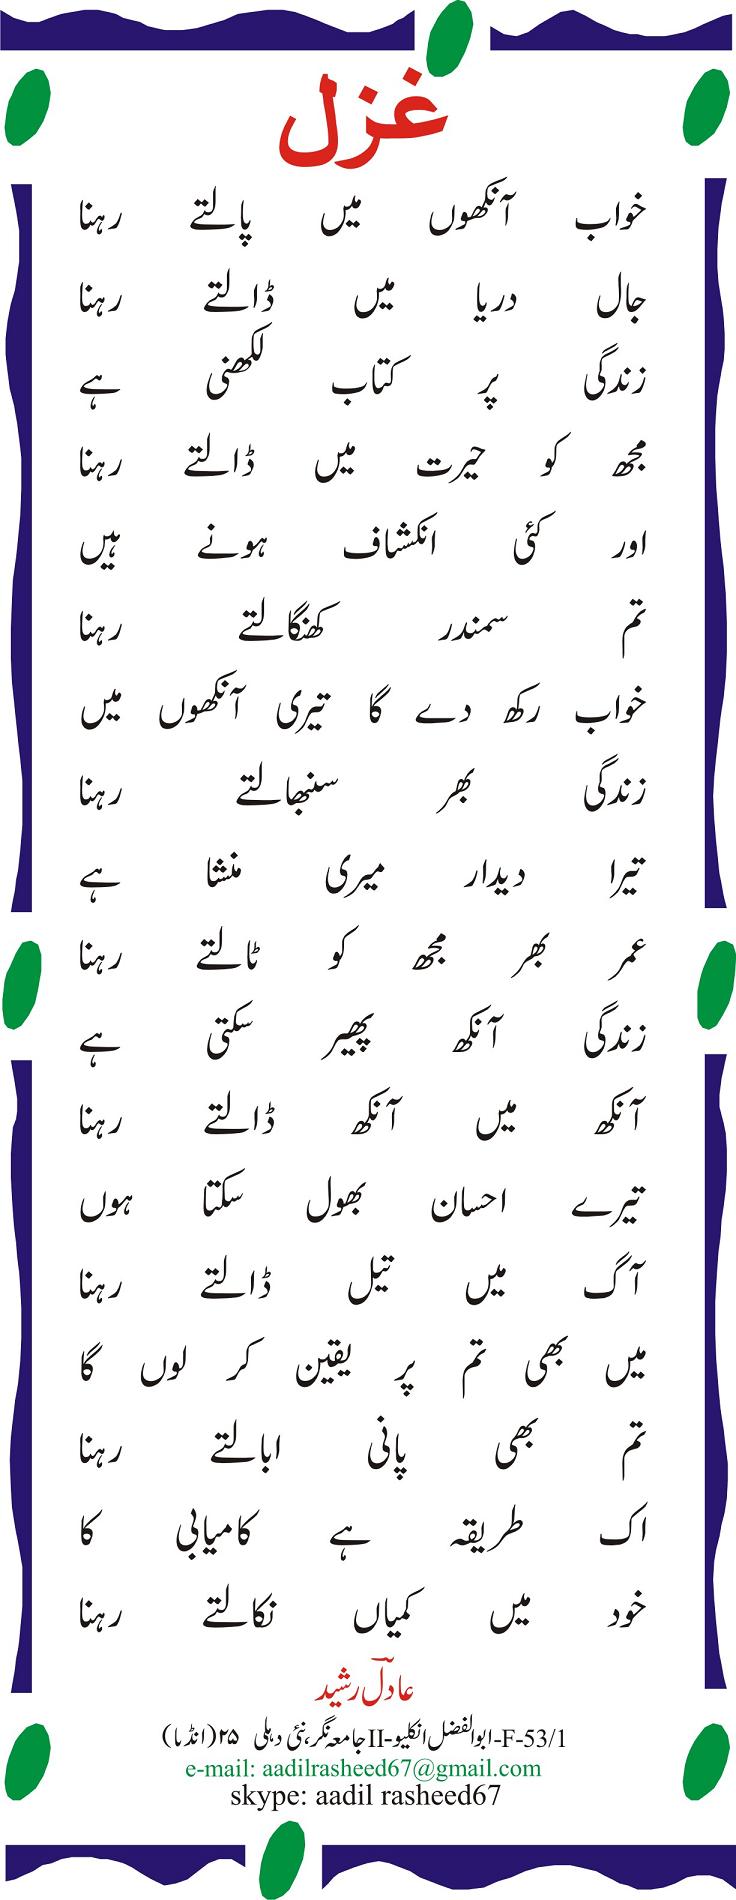 غزل
خواب آنکھوں میں پالتے رہنا
جال دریا میں ڈالتے رہنا
زندگی پر کتاب لکھنی ہے
مجھ کو حیرت میں ڈالتے رہنا
اور کئی انکشاف ہونے ہیں
تم سمندر کھنگالتے رہنا
خواب رکھ دے گا تیری آنکھوں میں
زندگی بھر سنبھالتے رہنا
تیرا دیدار میری منشا ہے
عمر بھر مجھ کو ٹالتے رہنا
زندگی آنکھ پھیر سکتی ہے
آنکھ میں آنکھ ڈالتے رہنا
تیرے احسان بھول سکتا ہوں
آگ میں تیل ڈالتے رہنا
میں بھی تم پر یقین کر لوں گا
تم بھی پانی ابالتے رہنا
اک طریقہ ہے کامیابی کا
خود میں کمیاں نکالتے رہنا
عادل رشید
F-53/1-ابوالفضل انکلیو-II جامعہ نگر، نئی دہلی ۲۵ (انڈیا)
e-mail: aadilrasheed67@gmail.com
skype: aadil rasheed67